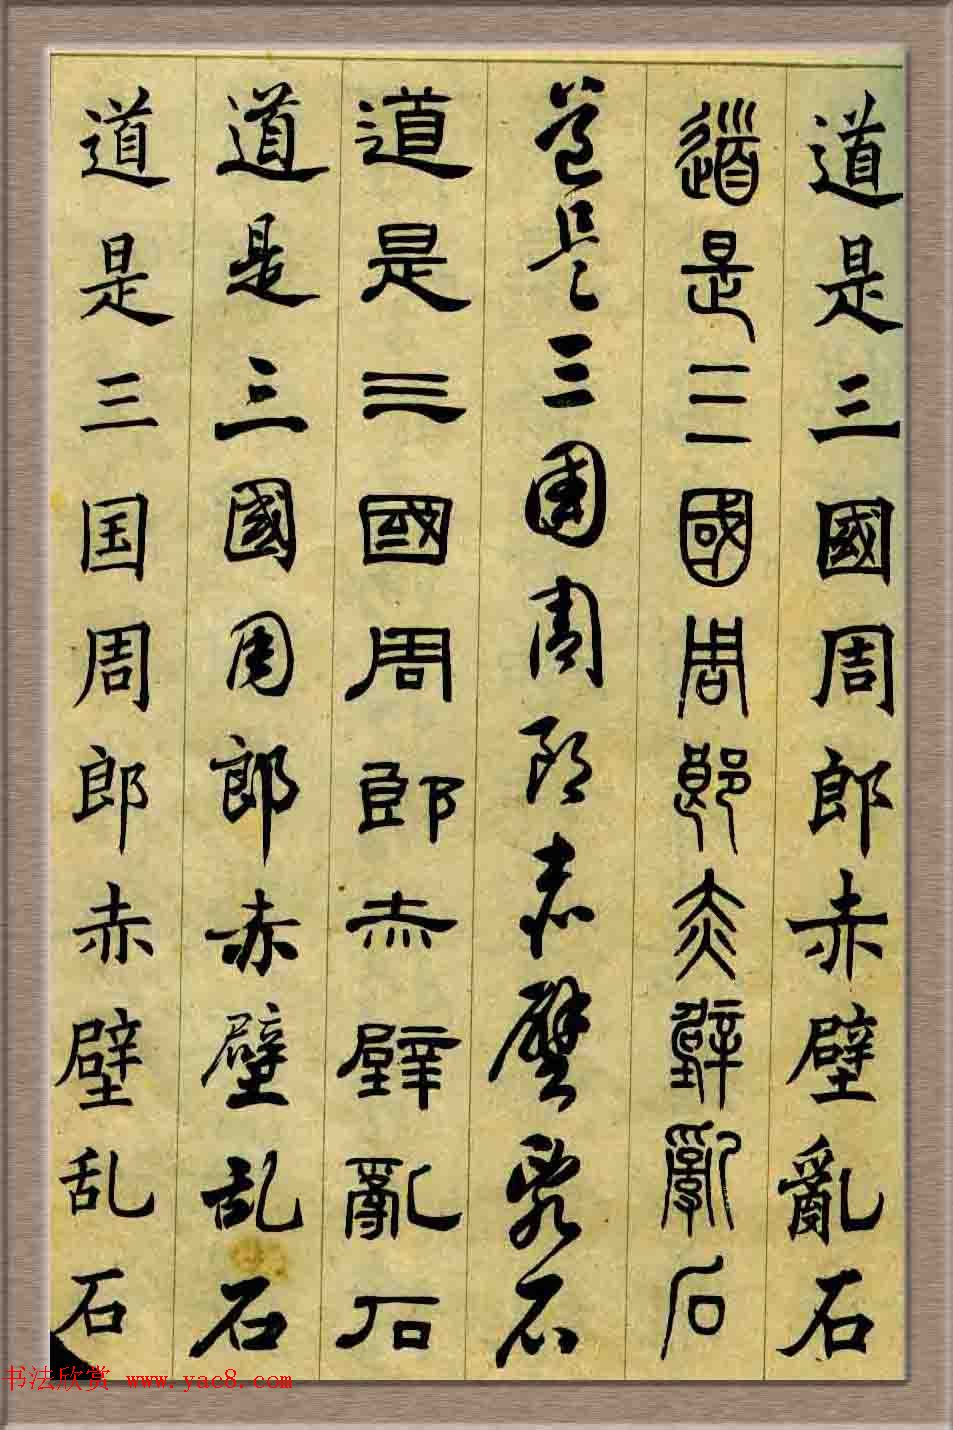 道是三國周郎赤壁亂石
道是三國周郎赤壁亂石
道是三國周郎赤壁亂石
道是三國周郎赤壁亂石
道是三國周郎赤壁乱石
道是三国周郎赤壁乱石
书法欣赏 www.yac8.com